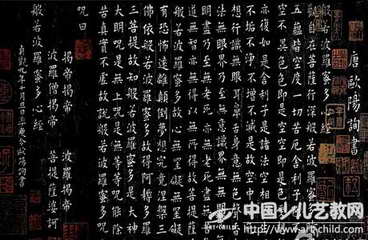 唐歐陽詢書
般若波羅蜜多心經
自在菩薩行深般若波羅蜜多
五蘊皆空度一切苦厄舍利子
空不異色色即是空空即是色
亦復如是舍利子是諸法空相
不淨不增不減是故空中
想行識無眼耳鼻舌身意無色
法無眼界乃至無意識界無無明
明盡乃至無老死亦無老死盡無
道無智亦無得以無所得故菩提薩
般若波羅蜜多故心無罣礙無罣礙
有恐怖遠離顛倒夢想究竟涅槃三
佛依般若波羅蜜多故得阿耨多羅
三菩提故知般若波羅蜜多是大神
大明咒是無上咒是無等等咒能除
苦真實不虛故說般若波羅蜜多咒
咒曰
揭帝揭帝 波羅揭帝
波羅僧揭帝 菩提薩婆訶
般若波羅蜜多心經
貞觀九年十月旦日率更令歐陽詢書
中国少儿艺教网
www.artchild.com